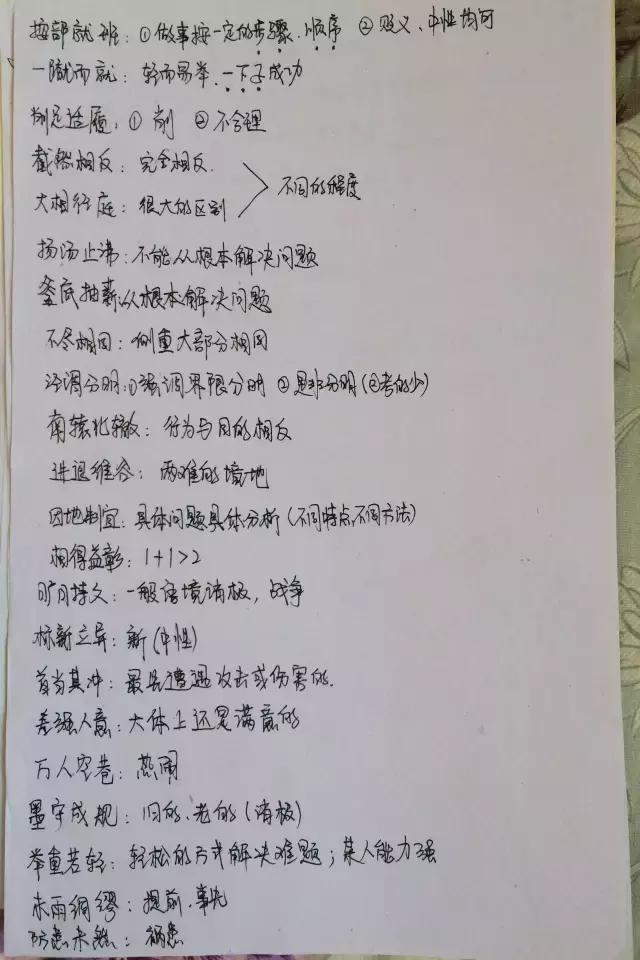 按部就班：①做事按一定的步骤、顺序 ②贬义、中性均可
一蹴而就：轻而易举、一下子成功
削足适履：①削 ②不合理
截然相反：完全相反.
大相径庭：很大的区别
不同的程度
扬汤止沸：不能从根本解决问题
釜底抽薪：从根本解决问题
不尽相同：侧重大部分相同
泾渭分明：①强调界限分明 ②是非分明(②考的少)
南辕北辙：行为与目的相反
进退维谷：两难的境地
因地制宜：具体问题具体分析(不同特点,不同方法)
相得益彰：1+1>2
旷日持久：一般语境消极，战争
标新立异：新(中性)
首当其冲：最先遭遇攻击或伤害的.
差强人意：大体上还是满意的
万人空巷：热闹
墨守成规：旧的、老的(消极)
举重若轻：轻松的方式解决难题；某人能力强
未雨绸缪：提前、事先
防患未然：祸患